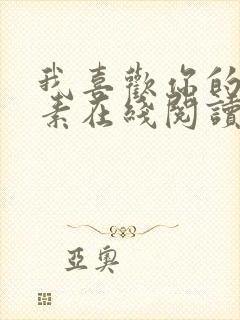 我喜歡你的
素在綫閱讀
亞奧